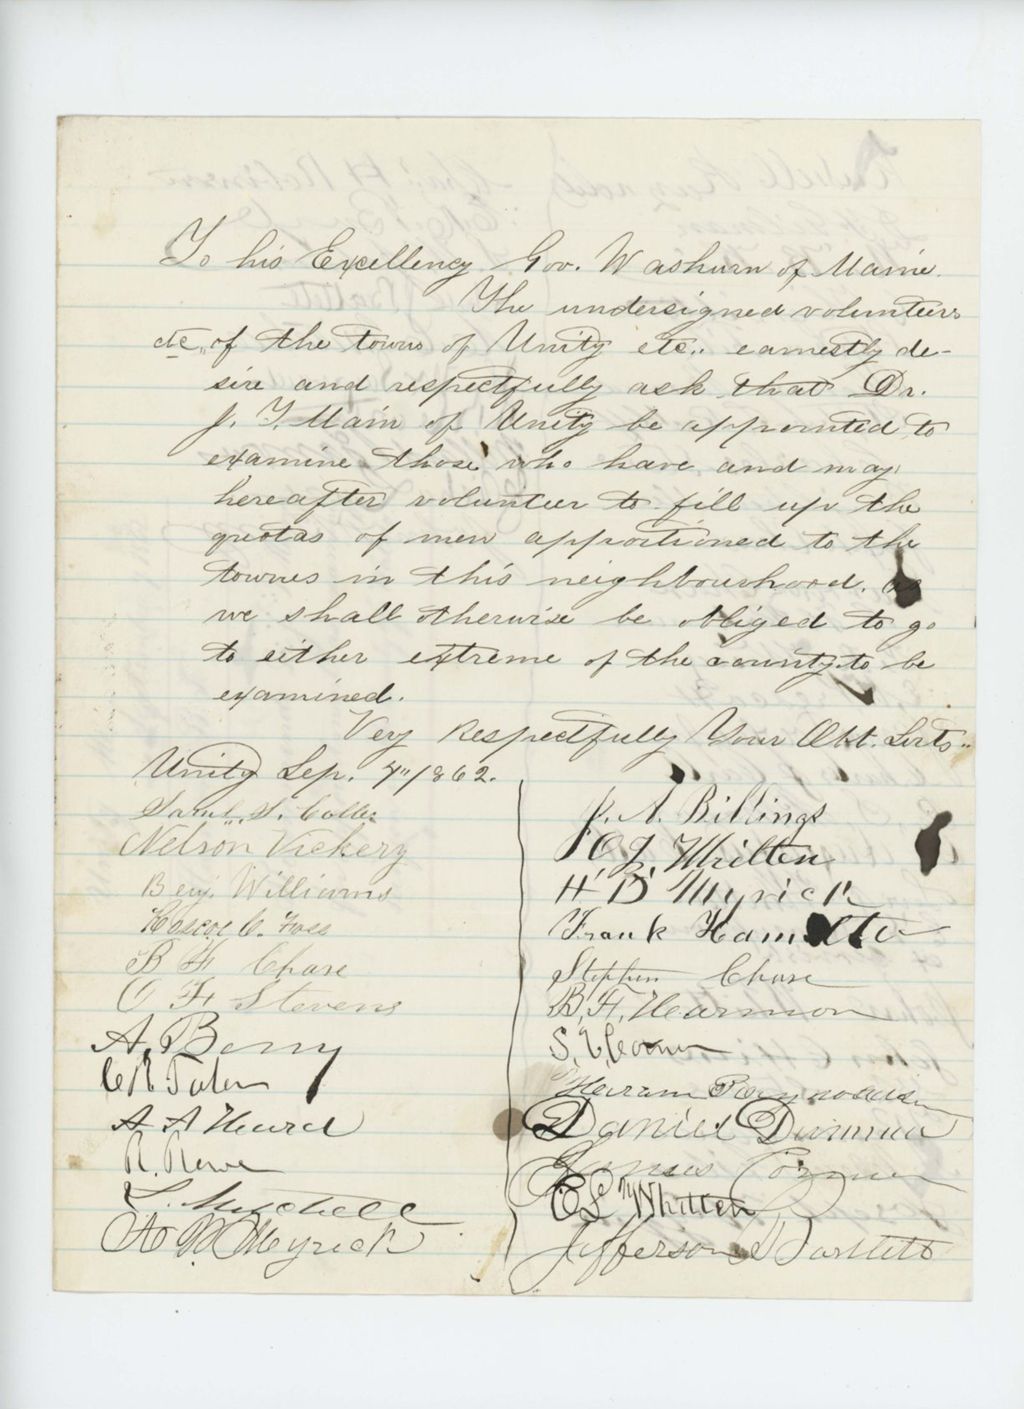 To his Excellency Gov. Washurn of Maine.
The undersigned volunteers
etc., of the towns of Unity etc., earnestly de-
sire and respectfully ask that Dr.
J. T. Main of Unity be appointed to
examine those who have and may
hereafter volunteer to fill up the
quotas of men apportioned to the
townes in this neighbourhood. as
we shall otherwise be obliged to go
to either extreme of the county to be
examined.
Very Respectfully Your Obt. Servts.
Unity Sep. 4" 1862.
Nelson Vickery
Benj. Williams
Roscoe O. Foss
B F Chase
O F Stevens
A. Berry
A A Heard
R. Rowe
L. Mitchell
A B Myrick
J. A. Billings
O J Whitten
H B Myrick
Frank Hamilton
Stephen Chase
B. F. Hearmon
Hiram Reynolds
Daniel
James
E L Whitten
Jefferson Bartlett